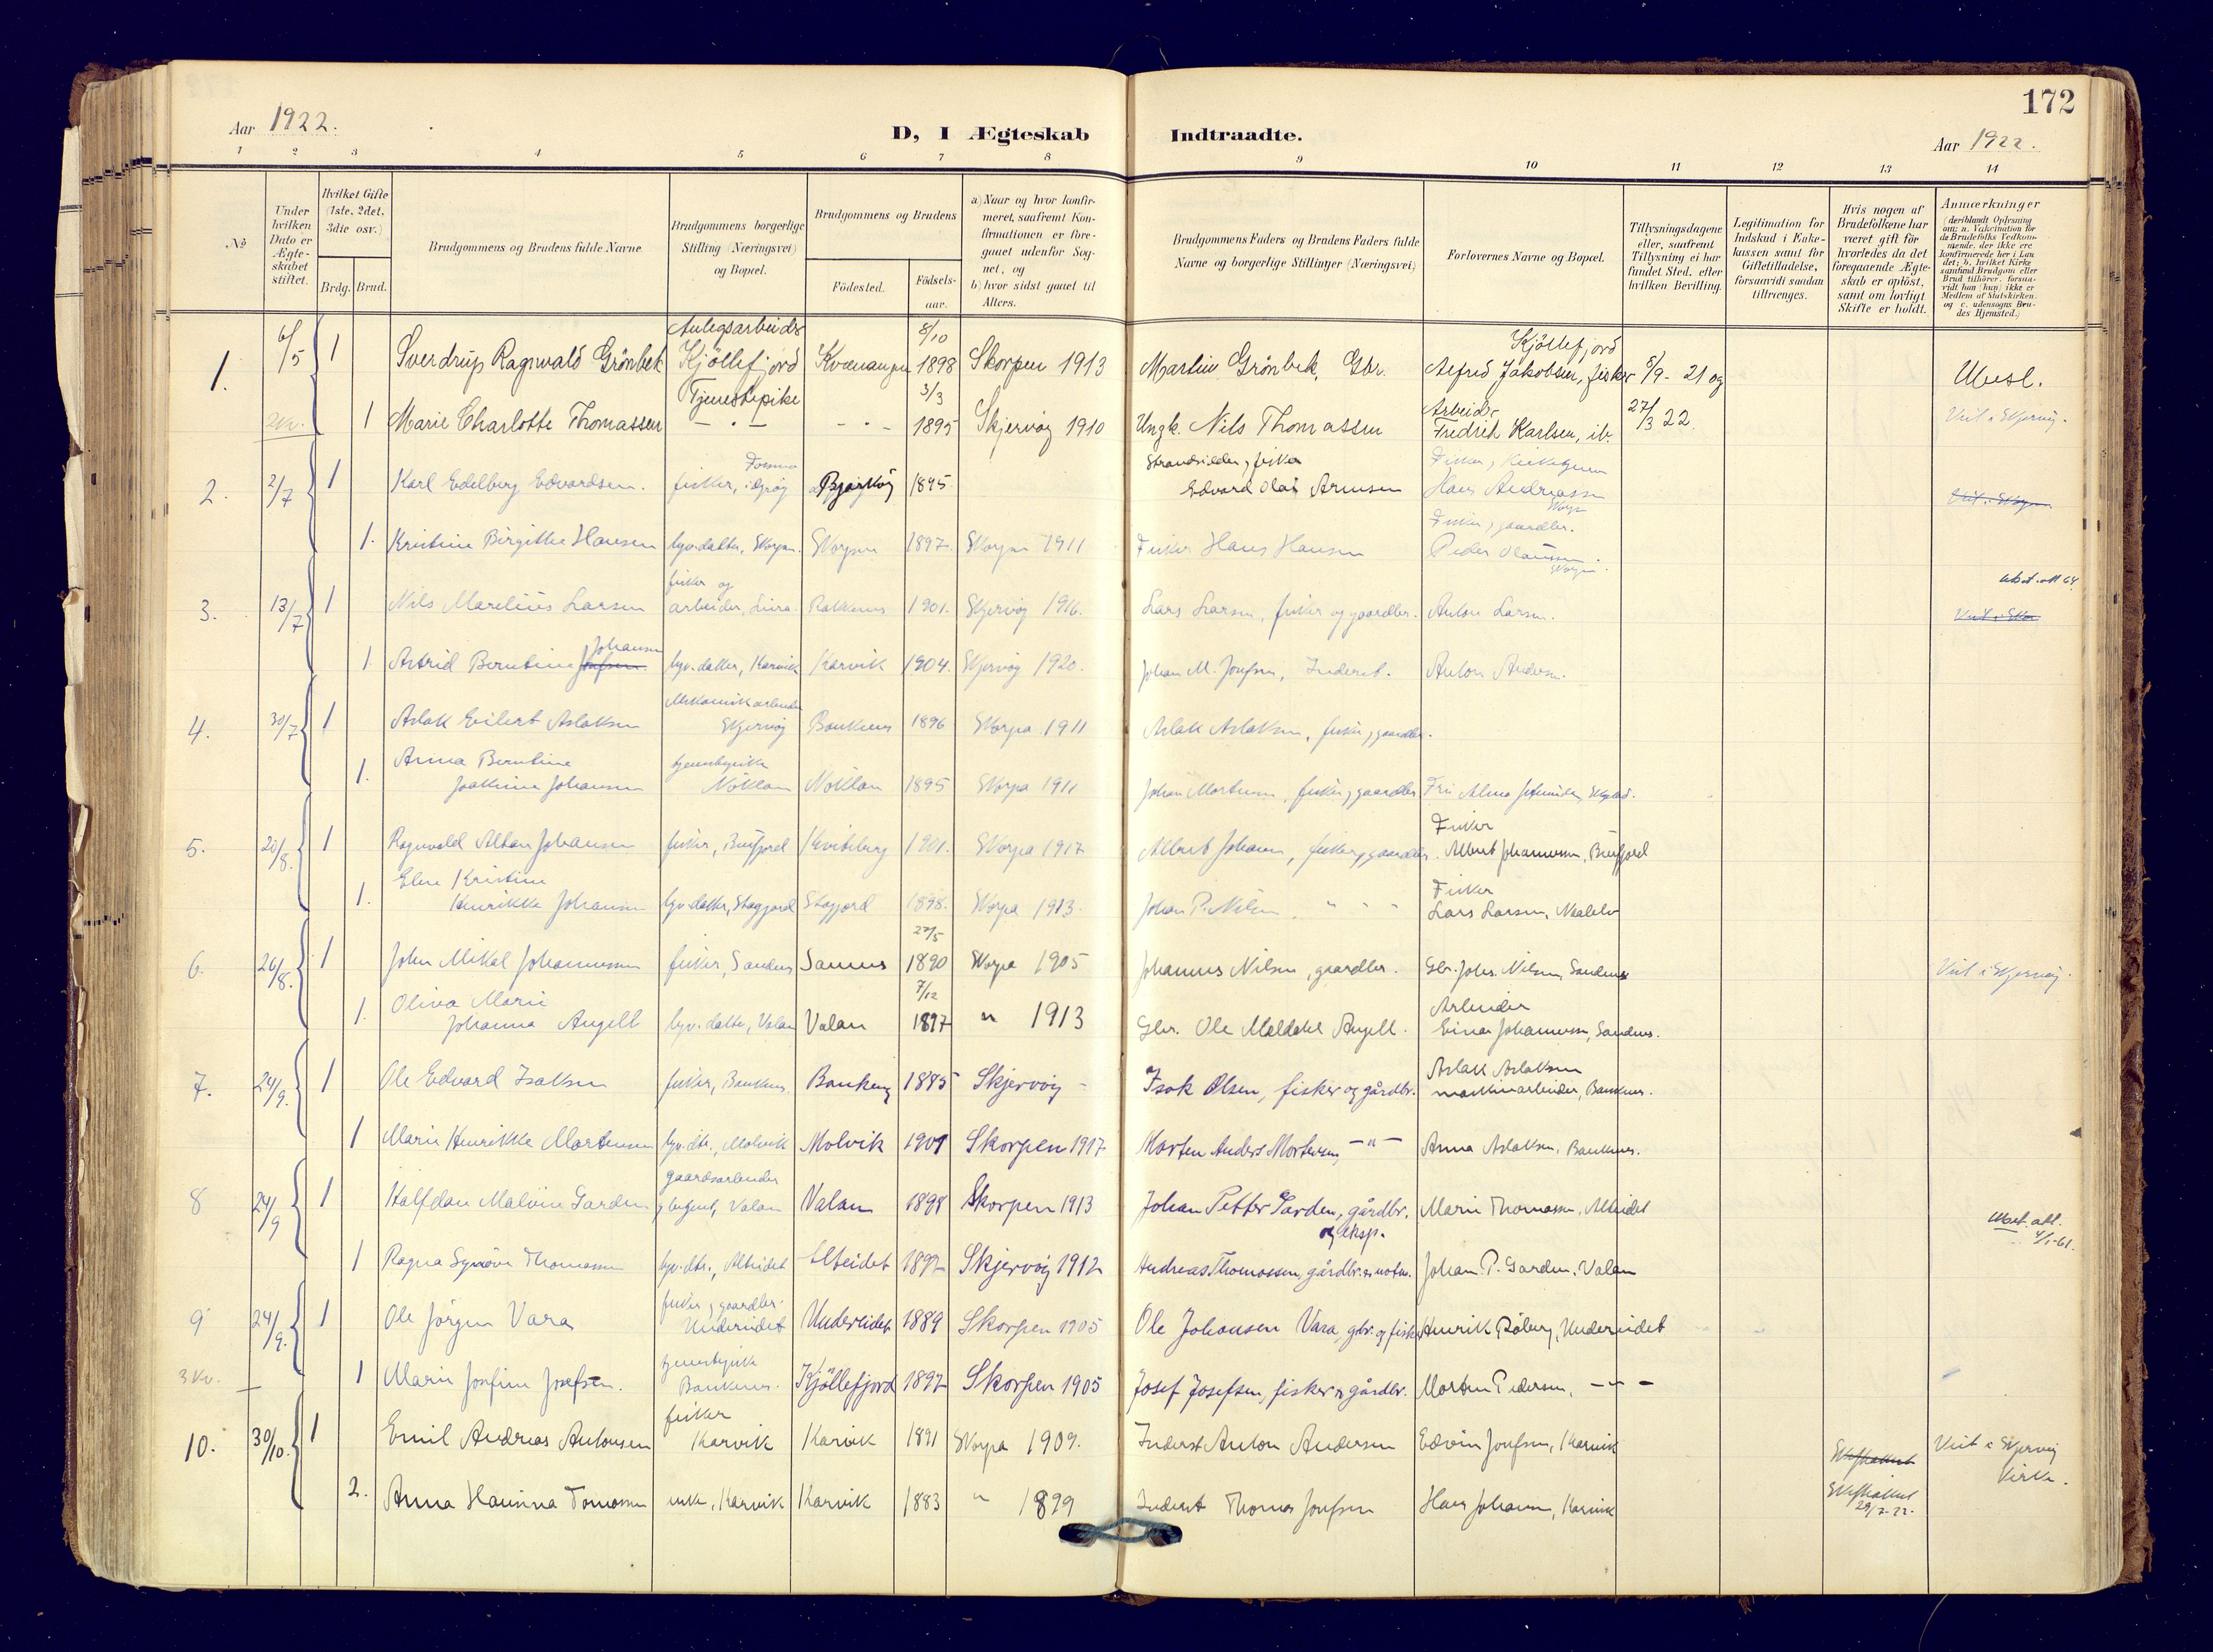 172
Aar 1922.
D, I Ægteskab Indtraadte.
Aar 1922.
1 2 3 4 5 6 7 8 9 10 11 12 13 14
№
Under hvilken Dato er Ægteskabet stiftet.
Hvilket Gifte (1ste, 2det, 3die osv.)
Brdg. Brud.
Brudgommens og Brudens fulde Navne
Brudgommens borgerlige Stilling (Næringsvei) og Bopæl.
Brudgommens og Brudens
Födested.
Födselsaar.
a) Naar og hvor konfirmeret, saafremt Konfirmationen er foregaaet udenfor Sognet, og
b) hvor sidst gaaet til Alters.
Brudgommens Faders og Brudens Faders fulde Navne og borgerlige Stillinger (Næringsvei)
Forlovernes Navne og Bopæl.
Tillysningsdagene eller, saafremt Tillysning ei har fundet Sted, efter hvilken Bevilling.
Legitimation for Indskud i Enkekassen samt for Giftetilladelse, forsaavidt saadan tiltrænges.
Hvis nogen af Brudefolkene har været gift för hvorledes da det foregaaende Ægteskab er oplöst, samt om lovligt Skifte er holdt.
Anmærkninger
(deriblandt Oplysning om: a. Vakcination for de Brudefolks Vedkommende, der ikke ere konfirmerede her i Landet; b. hvilket Kirkesamfund Brudgom eller Brud tilhörer, forsaavidt han (hun) ikke er Medlem af Statskirken, og c. udensogns Brudes Hjemsted.)
1. 6/5 1 Sverdrup Ragnvald Grönbek Anlegsarbeider Kjöllefjord Kvænangen 8/10 1898 Skorpen 1913 Martin Grönbek, Gbr. Kjöllefjord Alfred Jakobsen, fisker 8/9-21 og
2kv. 1 Marie Charlotte Thomassen Tjenestepike - " - - " - 3/3 1895 Skjervøy 1910 Ungk. Nils Thomassen Arbeider Fredrik Karlsen, ib. 27/3 22. Viet i Skjervøy.
2. 2/7 1 Karl Edelberg Edvardsen. fisker, Bjarköy 1895 Strandsidder, fisker Edvard Olai Arnesen Hans Andreassen
1. Kristine Birgitte Hansen hjv. datter, Skorpen. Skorpen 1897. Skorpen 1911 Fisker Hans Hansen Fisker, gaardbr. Peder
3. 13/7 1 Nils Marelius Larsen fisker og arbeider, 1901. Skjervøy 1916. Lars Larsen, fisker og gaardbr. Anton Larsen.
1. Astrid Berntine Johansen hjv. datter, Karvik Karvik 1904. Skjervøy 1920. Johan M. Josefsen, Inderst. Anton Andersen.
4. 30/7 1 Aslak Eilert Aslaksen Skjervøy Bankenes 1896 Skorpa 1911 Aslak Aslaksen, fisker, gaardbr.
1. Anna Berntine Joakime Johansen tjenestepike Nöklan Nöklan 1895 Skorpa 1911 Johan Mortensen, fisker, gaardbr.
5. 20/8. 1 Ragnvald Johansen fisker, Burfjord Kvitberg 1901. Skorpa 1917 Albert Johansen, fisker, gaardbr. Fisker Albert Johannesen, Burfjord
1. Elen Kristine Henrikke Johansen hjv. datter, 1898. Skorpa 1913. Johan P. Nilsen Fisker Lars Larsen,
6. 26/8. 1 John Mikal Johannessen fisker, Sandnes 27/5 1890 Skorpa 1905 Johannes Nilsen, gaardbr. Gbr. Johs. Nilsen, Sandnes Viet i Skjervøy.
1. Oliva Marie Johanna Angell hjv. datter, Valan Valan 7/12 1897 " 1913 Gbr. Ole Meldahl Angell. Arbeider Einar Johannessen, Sandnes.
7. 24/9. 1 Ole Edvard Isaksen fisker, Bankenes. Bankenes 1885 Skjervøy - Isak Olsen, fisker og gårdbr. Aslak Aslaksen maskinarbeider, Bankenes.
1 Marie Henrikke Mortensen hjv. dtr., Molvik Molvik 1901 Skorpen 1917 Morten Anders Mortensen, - " - Anna Aslaksen, Bankenes.
8 24/9 1 Halfdan Malvin Garden gaardsarbeider Valan Valan 1898 Skorpen 1913 Johan Petter Garden, gårdbr. og eksp. Marie Thomassen, Alteidet
1 Ragna Synnöve Thomassen hjv. dtr., Alteidet Alteidet 1892 Skjervøy 1912 Andreas Thomassen, gårdbr. Johan P. Garden, Valan
9 24/9. 1 Ole Jörgen Vara fisker, gaardbr. Undereidet Undereidet 1889 Skorpen 1905 Ole Johansen Vara, gbr. og fisker Henrik Röberg, Undereidet
3 Kv. 1 Marie Josefine Josefsen. tjenestepike Bankenes. Kjöllefjord 1897 Skorpen 1905 Josef Josefsen, fisker og gårdbr. Morten Pedersen, - " -
10. 30/10. 1 Emil Andreas Antonsen fisker Karvik Karvik 1891 Skorpa 1909. Inderst Anton Andersen Edvin Josefsen, Karvik Viet i Skjervøy Kirke.
2. Anna Hanna Tomassen enke, Karvik Karvik 1883 " 1899 Inderst Thomas Josefsen Hans Johansen, Karvik Skifteattest